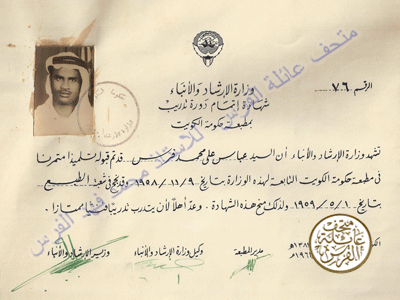 وزارة الإرشاد والأنباء
شهادة إتمام دورة تدريب
بمطبعة حكومة الكويت
الرقم ٧٦
تشهد وزارة الإرشاد والأنباء أن السيد عباس علي محمد فرس قد تم قبول تلميذا متمرنا
في مطبعة حكومة الكويت التابعة لهذه الوزارة بتاريخ ١٩٥٨/١١/٩ وقد نجح في شعبة الطبع
بتاريخ ١٩٥٩/٥/١ ولذلك منح هذه الشهادة. وعد أهلا لأن يتدرب تدريبا ممتازا.
مدير المطبعة
وكيل وزارة الإرشاد والأنباء
وزير الإرشاد والأنباء
متحف عائلة الفرس للأستاذ محمد الفرس
متحف
عائلة
الفرس